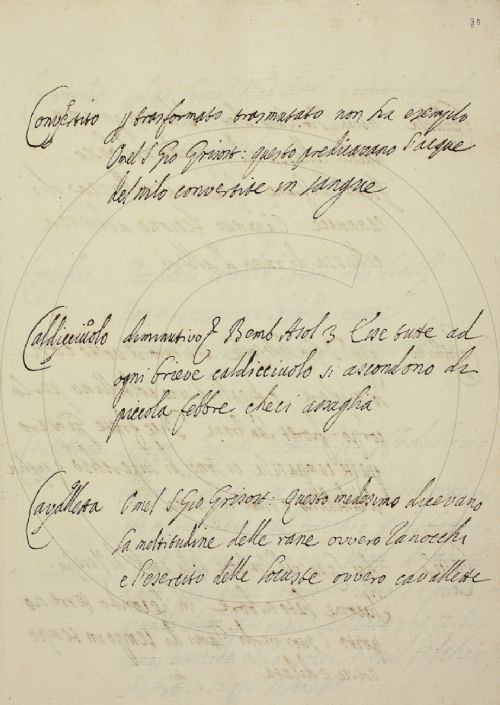 80
Convertito p trasformato trasmutato non ha esempio
Omel S Gio Grisost: questo predicavano l'acque
del nilo convertite in sangue
Caldicciuolo diminutivo Bemb Asol 3 Che tute ad
ogni brieve caldicciuolo si ascondono di
piccola febbre checi assaglia
Cavalletta Omel S Gio Grisost: Questo medesimo dicevano
la moltitudine delle rane ovvero ranocchi
e l'esercito delle locuste ovvero cavallette